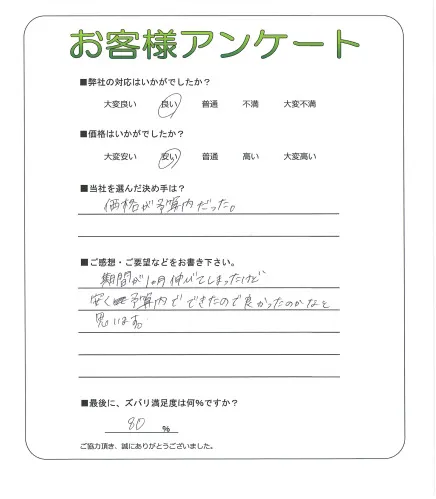 お客様アンケート
■弊社の対応はいかがでしたか?
大変良い 良い 普通 不満 大変不満
■価格はいかがでしたか?
大変安い 安い 普通 高い 大変高い
■当社を選んだ決め手は?
価格が予算内だった。
■ご感想・ご要望などをお書き下さい。
期間が1ヶ月伸びてしまったけど
安く予算内でできたので良かったのかなと
思います。
■最後に、ズバリ満足度は何%ですか?
80 %
ご協力頂き、誠にありがとうございました。